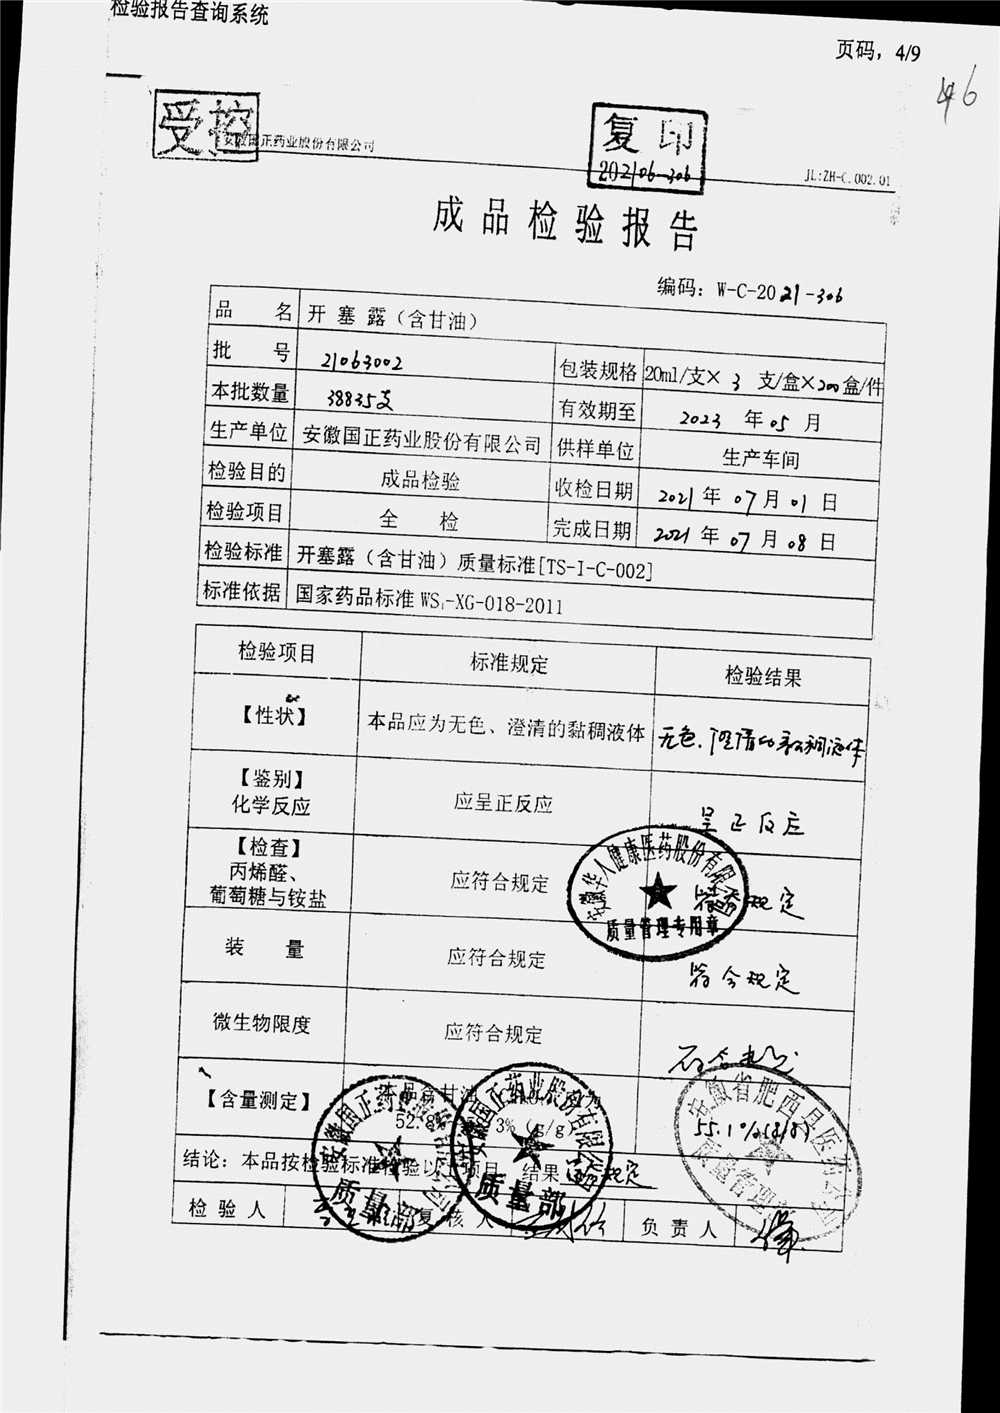 检验报告查询系统
页码，4/9
46
受控
安徽国正药业股份有限公司
复印
202106-306
JL:ZH-C.002.01
成品检验报告
编码：W-C-2021-306
品 名 开塞露（含甘油）
批 号 21063002 包装规格 20ml/支×3 支/盒×200盒/件
本批数量 38835支 有效期至 2023 年 05 月
生产单位 安徽国正药业股份有限公司 供样单位 生产车间
检验目的 成品检验 收检日期 2021 年 07 月 01 日
检验项目 全 检 完成日期 2021 年 07 月 08 日
检验标准 开塞露（含甘油）质量标准[TS-I-C-002]
标准依据 国家药品标准 WS₁-XG-018-2011
检验项目 标准规定 检验结果
【性状】 本品应为无色、澄清的黏稠液体 无色、澄清的黏稠液体
【鉴别】
化学反应 应呈正反应 呈正反应
【检查】
丙烯醛、
葡萄糖与铵盐 应符合规定 符合规定
安徽华人健康医药股份有限公司
质量管理专用章
装 量 应符合规定 符合规定
微生物限度 应符合规定 符合规定
【含量测定】 本品含甘油
52.8 3%（g/g） 55.1%(g/g)
安徽国正药业股份有限公司
质量部
安徽国正药业股份有限公司
质量部
安徽省肥西县医药公司
质量管理
结论：本品按检验标准检验以上项目，结果 符合规定
检验人 复核人 负责人